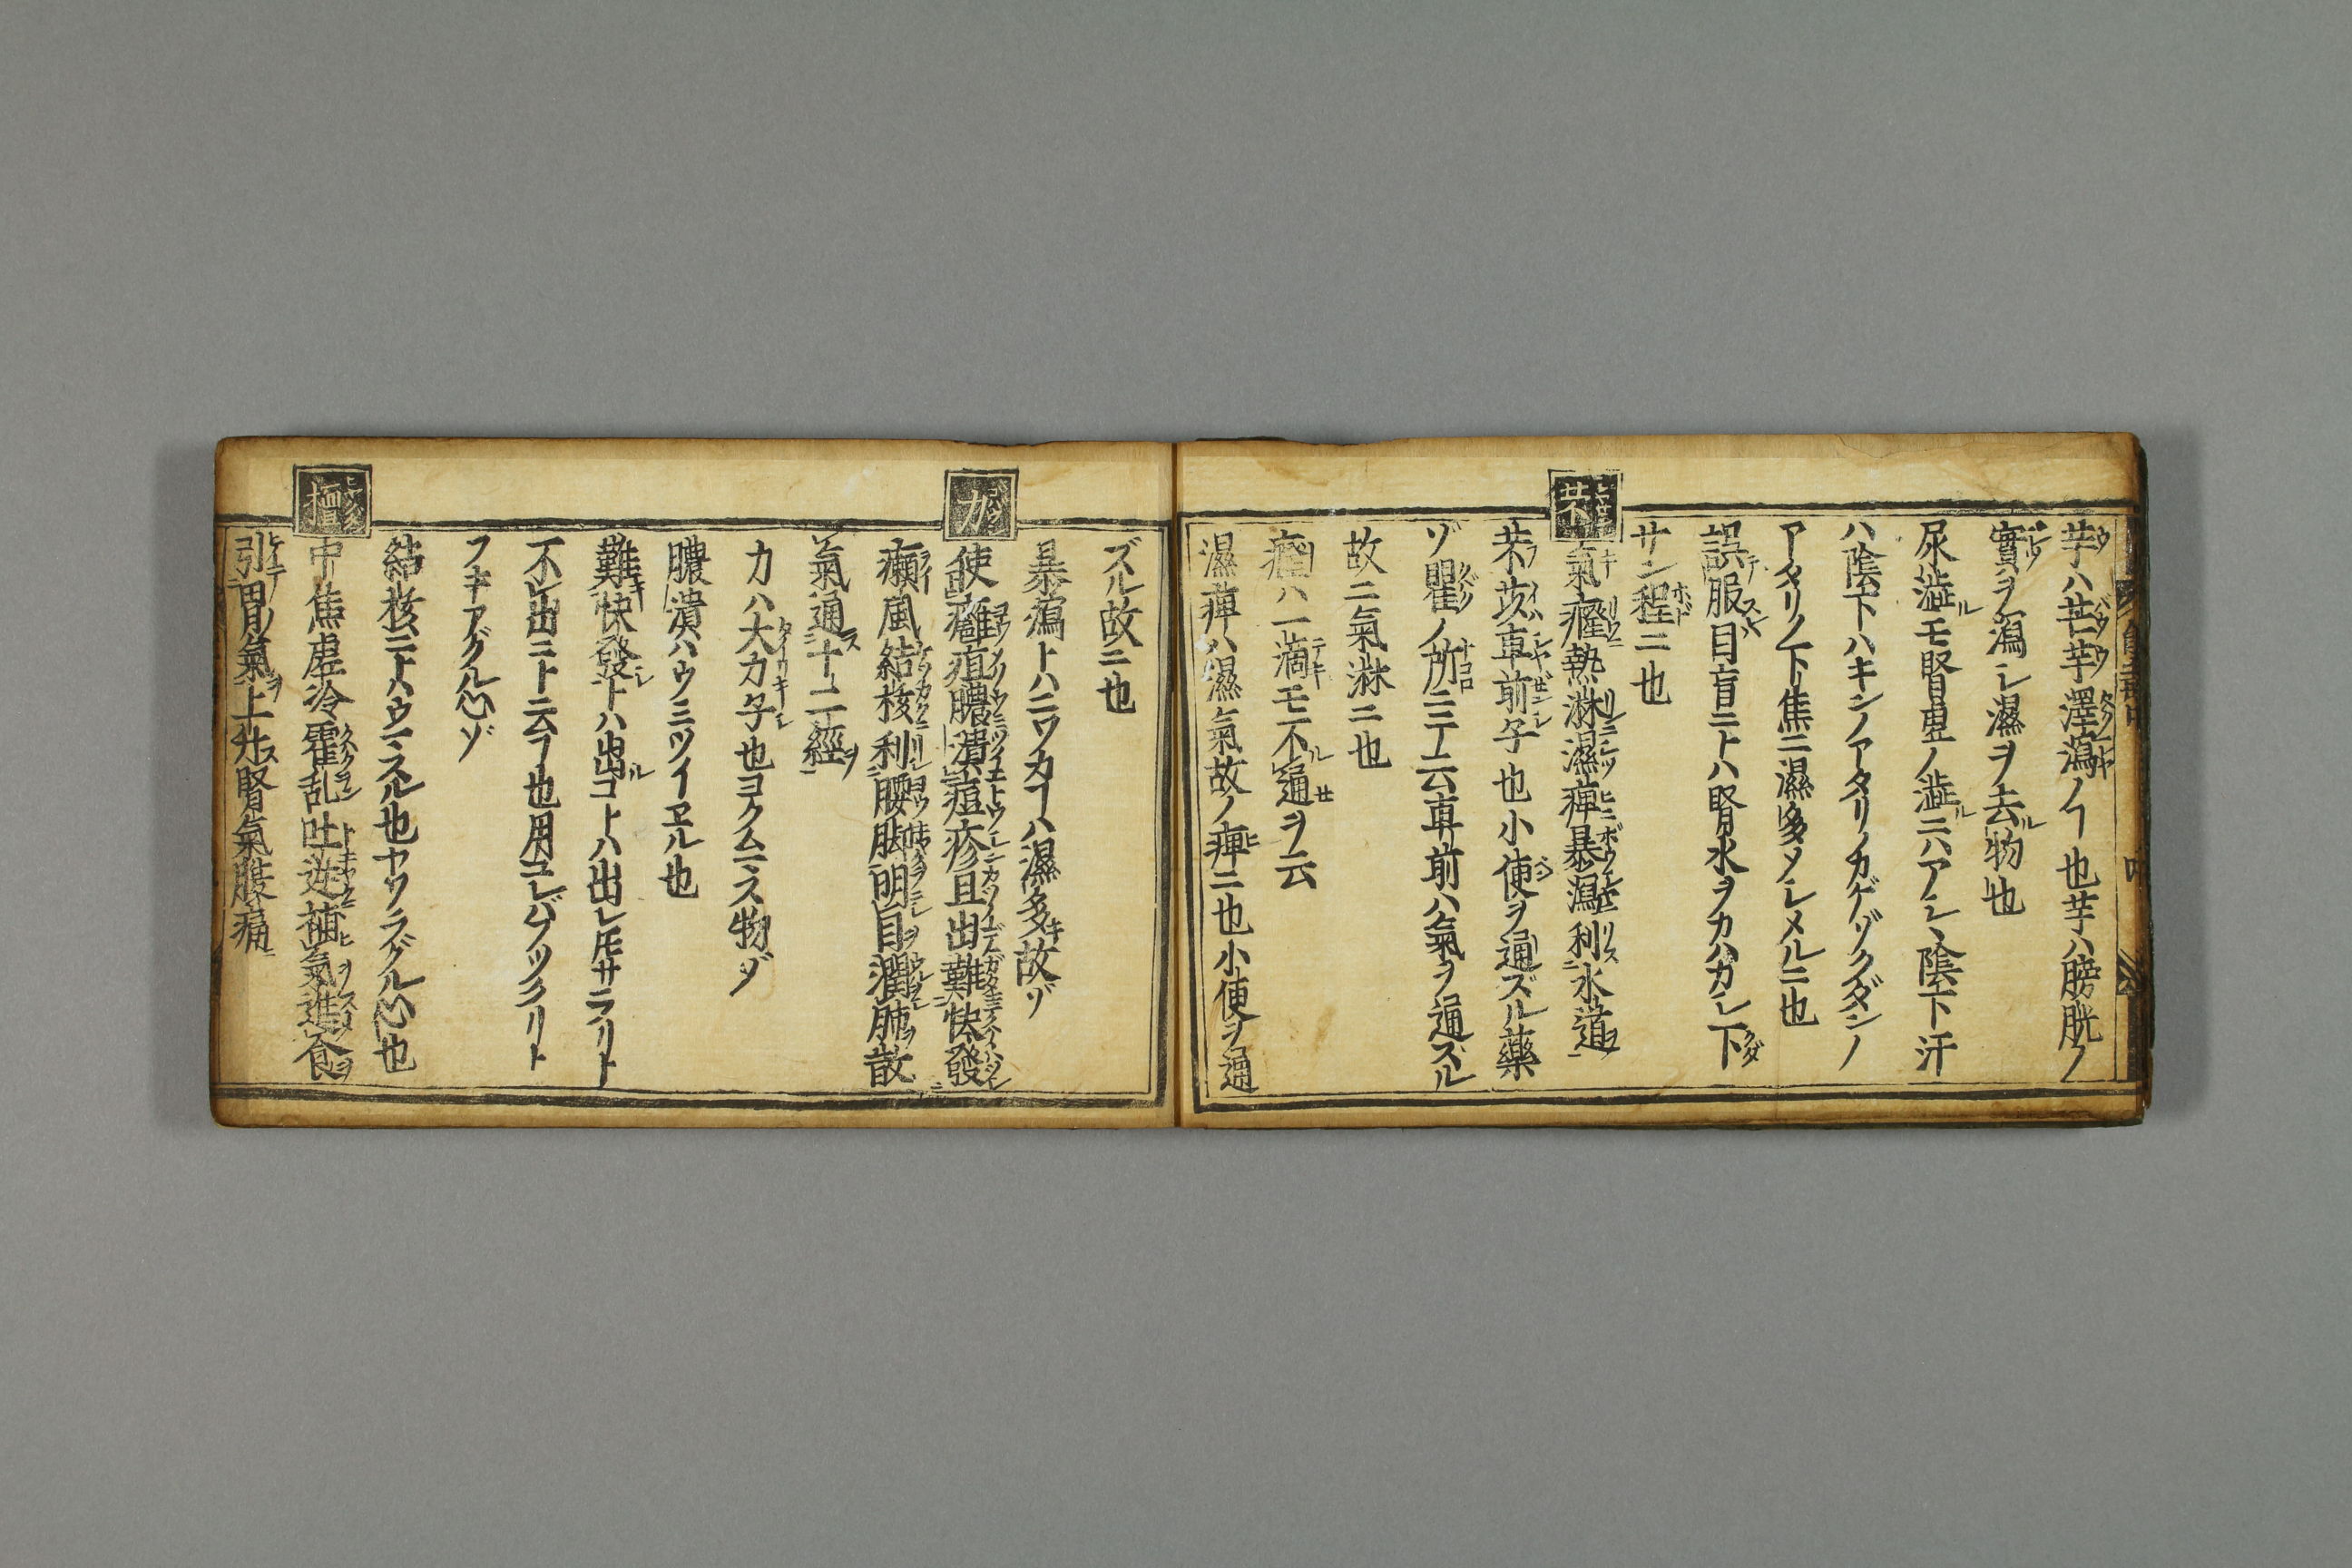 芋ハ芒芋澤瀉ノ也芋ハ膀胱ノ
實ヲ瀉シ濕ヲ去ル物也
尿澁ルモ腎虚ノ澁ルニハアシヽ陰下汗
ハ陰下ハキンノアタリノカゲゾクダンノ
アタリノ下焦ニ濕多メシメルニ也
誤テ服スレバ目盲ニトハ腎水ヲカハカシ下
サン程ニ也
芣
氣癃熱淋濕痺暴瀉利水道
芣苡車前子也小使ヲ通ズル藥
ゾ瞿ノ所ニ云車前ハ氣ヲ通ズル
故ニ氣淋ニ也
癃ハ一滴モ不通ヲ云
濕痺ハ濕氣故ノ痺ニ也小便ヲ通
ズル故ニ也
暴瀉トハニワカハ濕多キ故ゾ
力
使癰疽膿潰痘疹且出難快發
癩風結核利腰脚明目潤肺散
氣通十二經
力ハ大力子也ヨク物ゾ
膿潰ハウミツイヱル也
難快發トハ出ルコトハ出レサラリト
不出ニト云也用ユレバツクリト
フキアグル心ゾ
結核ニトハウスル也ヤワラグル心也
榲
中焦虚冷霍乱吐逆補氣進食
引胃氣上升腎氣腹痛